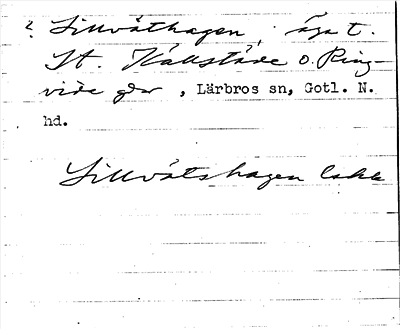 ? Lillvåthagen, äga t.
St. Källstäde o. Ring-
vide gdr, Lärbros sn, Gotl. N.
hd.
Lillvåtshagen